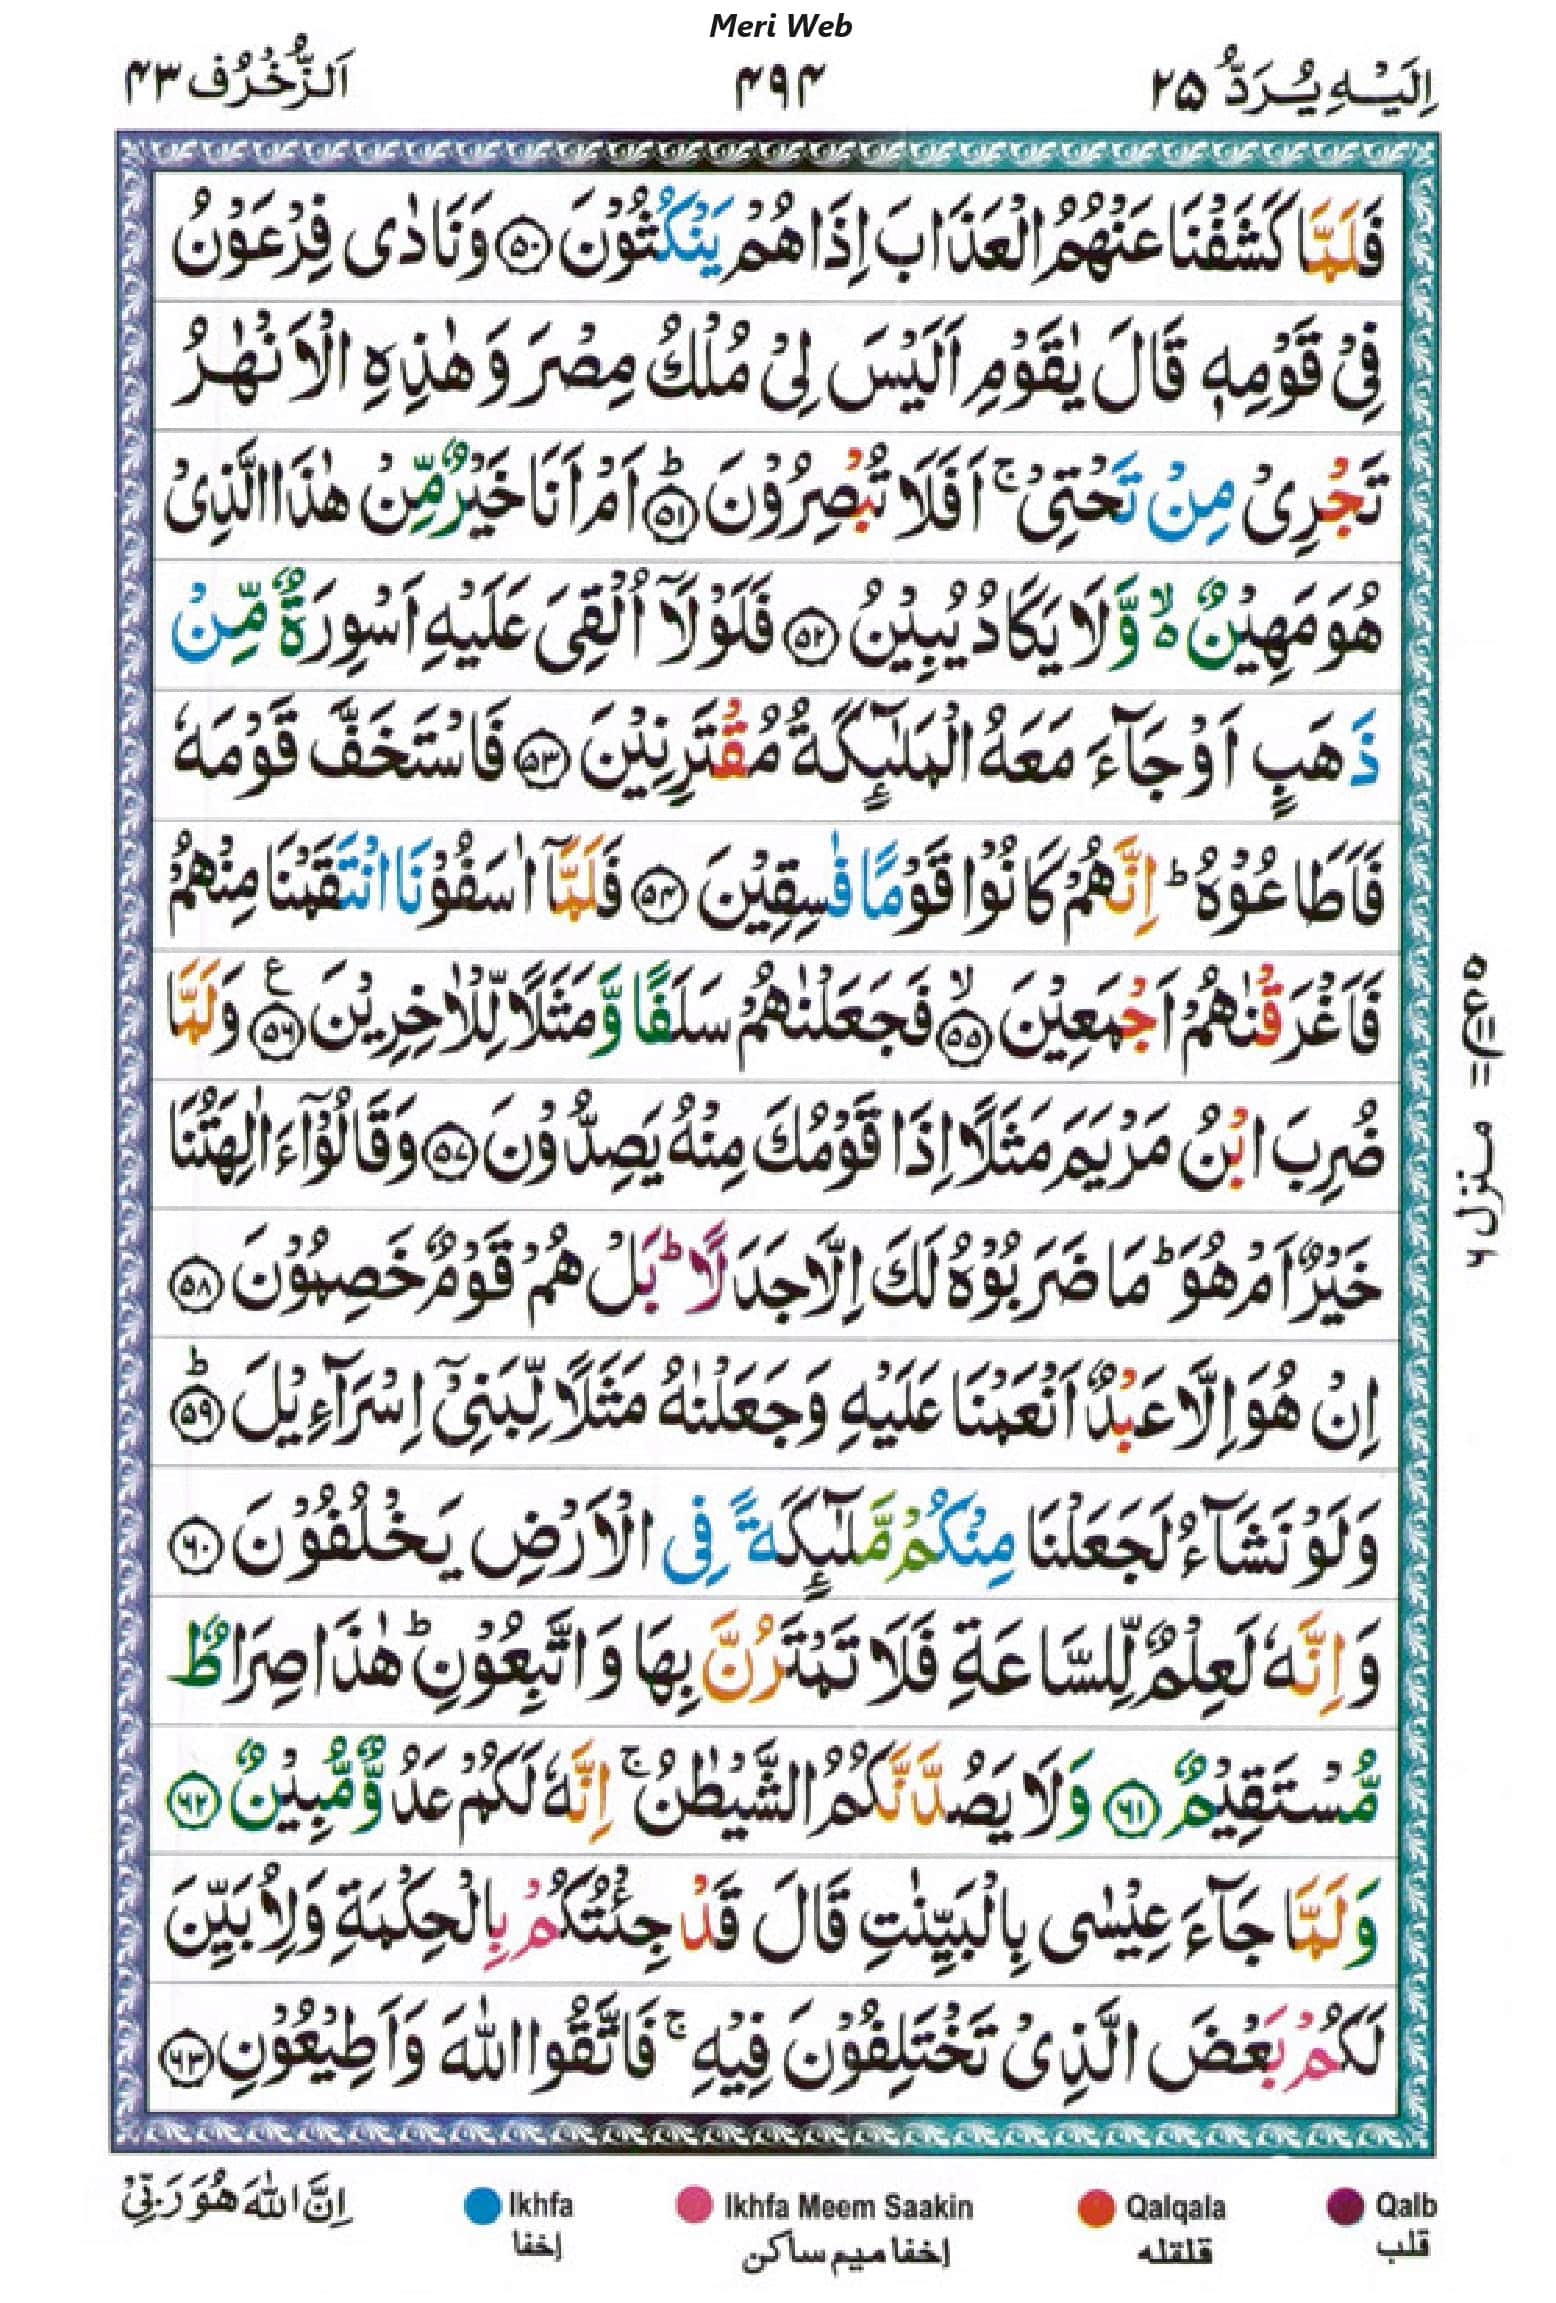 Meri Web
اِلَيْهِ يُرَدُّ ٢٥
٤٩٤
اَلزُّخْرُف ٤٣
فَلَمَّا كَشَفْنَا عَنْهُمُ الْعَذَابَ اِذَا هُمْ يَنْكُثُوْنَ ۝٥٠ وَنَادٰى فِرْعَوْنُ
فِيْ قَوْمِهٖ قَالَ يٰقَوْمِ اَلَيْسَ لِيْ مُلْكُ مِصْرَ وَهٰذِهِ الْاَنْهٰرُ
تَجْرِيْ مِنْ تَحْتِيْ ۚ اَفَلَا تُبْصِرُوْنَ ؕ۝٥١ اَمْ اَنَا خَيْرٌ مِّنْ هٰذَا الَّذِيْ
هُوَ مَهِيْنٌ ۙ۬ وَّلَا يَكَادُ يُبِيْنُ ۝٥٢ فَلَوْلَاۤ اُلْقِيَ عَلَيْهِ اَسْوِرَةٌ مِّنْ
ذَهَبٍ اَوْ جَآءَ مَعَهُ الْمَلٰٓئِكَةُ مُقْتَرِنِيْنَ ۝٥٣ فَاسْتَخَفَّ قَوْمَهٗ
فَاَطَاعُوْهُ ؕ اِنَّهُمْ كَانُوْا قَوْمًا فٰسِقِيْنَ ۝٥٤ فَلَمَّاۤ اٰسَفُوْنَا انْتَقَمْنَا مِنْهُمْ
فَاَغْرَقْنٰهُمْ اَجْمَعِيْنَ ۙ۝٥٥ فَجَعَلْنٰهُمْ سَلَفًا وَّمَثَلًا لِّلْاٰخِرِيْنَ ع۝٥٦ وَلَمَّا
ضُرِبَ ابْنُ مَرْيَمَ مَثَلًا اِذَا قَوْمُكَ مِنْهُ يَصِدُّوْنَ ۝٥٧ وَقَالُوْۤا ءَاٰلِهَتُنَا
خَيْرٌ اَمْ هُوَ ؕ مَا ضَرَبُوْهُ لَكَ اِلَّا جَدَلًا ؕ بَلْ هُمْ قَوْمٌ خَصِمُوْنَ ۝٥٨
اِنْ هُوَ اِلَّا عَبْدٌ اَنْعَمْنَا عَلَيْهِ وَجَعَلْنٰهُ مَثَلًا لِّبَنِيْۤ اِسْرَآءِيْلَ ؕ۝٥٩
وَلَوْ نَشَآءُ لَجَعَلْنَا مِنْكُمْ مَّلٰٓئِكَةً فِى الْاَرْضِ يَخْلُفُوْنَ ۝٦٠
وَاِنَّهٗ لَعِلْمٌ لِّلسَّاعَةِ فَلَا تَمْتَرُنَّ بِهَا وَاتَّبِعُوْنِ ؕ هٰذَا صِرَاطٌ
مُّسْتَقِيْمٌ ۝٦١ وَلَا يَصُدَّنَّكُمُ الشَّيْطٰنُ ۚ اِنَّهٗ لَكُمْ عَدُوٌّ مُّبِيْنٌ ۝٦٢
وَلَمَّا جَآءَ عِيْسٰى بِالْبَيِّنٰتِ قَالَ قَدْ جِئْتُكُمْ بِالْحِكْمَةِ وَلِاُبَيِّنَ
لَكُمْ بَعْضَ الَّذِيْ تَخْتَلِفُوْنَ فِيْهِ ۚ فَاتَّقُوا اللّٰهَ وَاَطِيْعُوْنِ ۝٦٣
منزل ٦
اِنَّ اللّٰهَ هُوَ رَبِّيْ
Ikhfa
إخفا
Ikhfa Meem Saakin
إخفا ميم ساكن
Qalqala
قلقله
Qalb
قلب